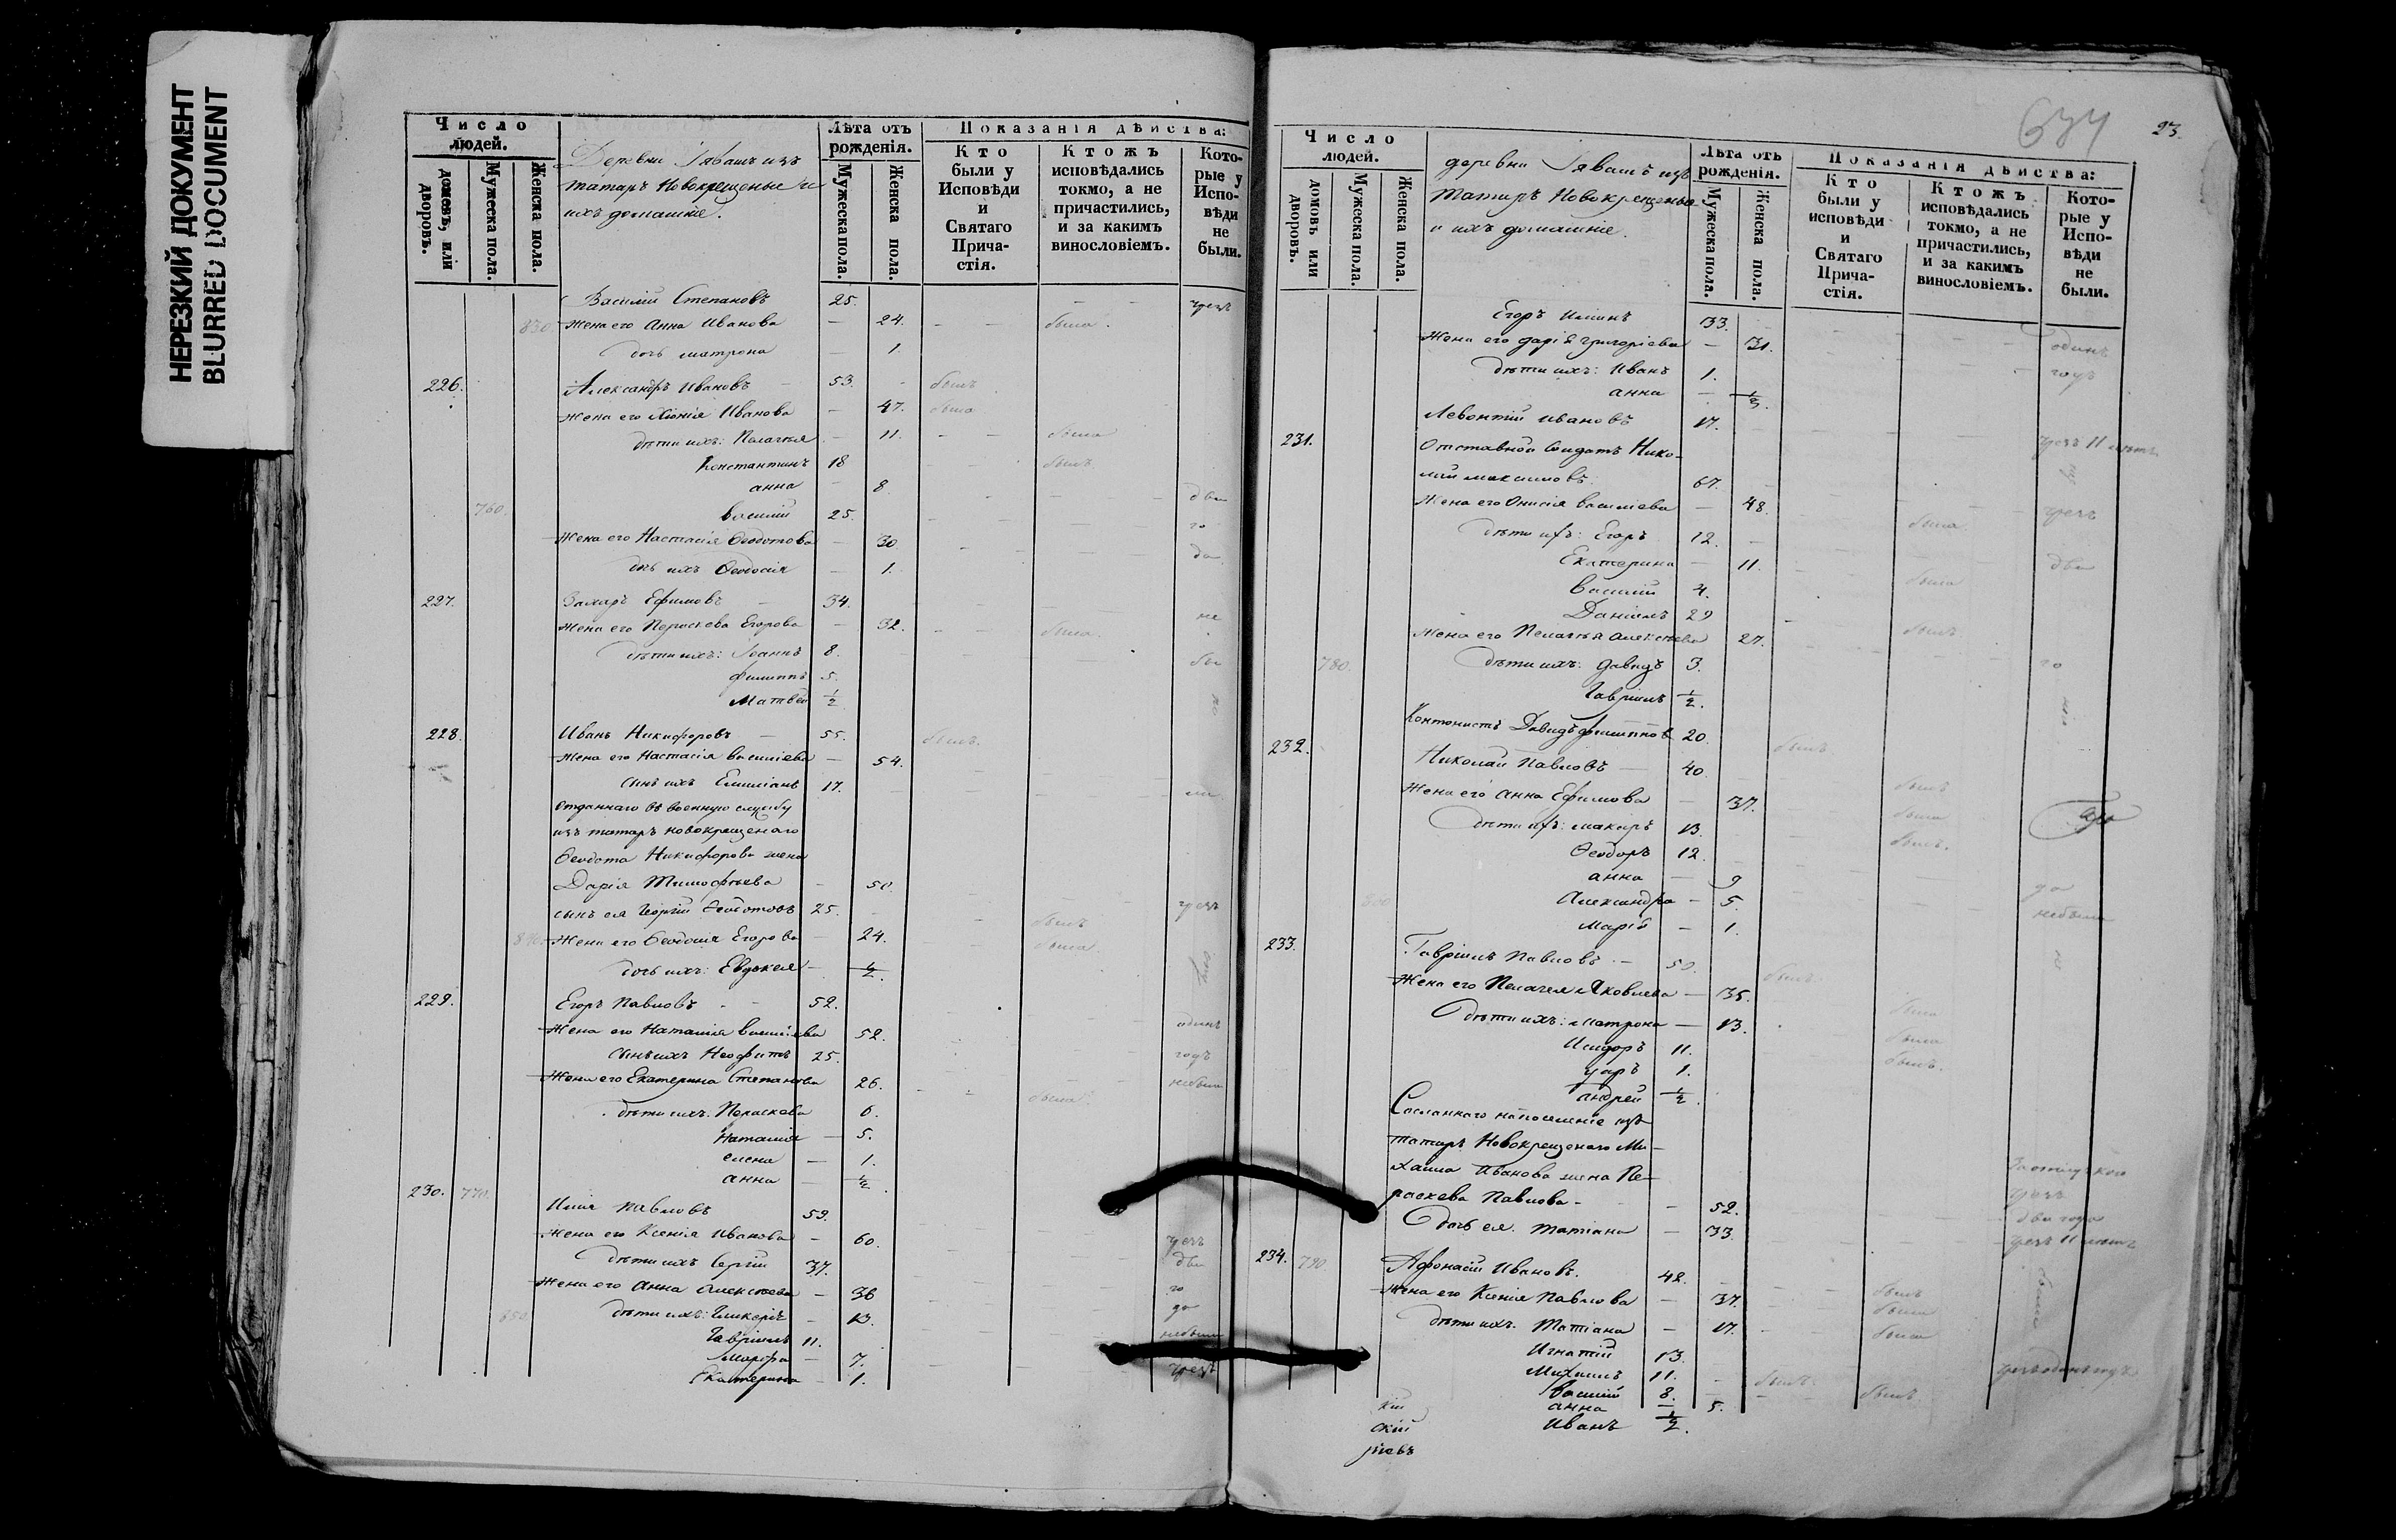 НЕРЕЗКИЙ ДОКУМЕНТ
BLURRED DOCUMENT
Число людей.
домовъ, или дворовъ.
Мужеска пола.
Женска пола.
Деревни Тявашъ изъ
татаръ Новокрещеные и
ихъ домашніе.
Лѣта отъ рожденія.
Мужеска пола.
Женска пола.
Показанія дѣйства:
Кто были у Исповѣди и Святаго Причастія.
Ктожъ исповѣдались токмо, а не причастились, и за какимъ винословіемъ.
Которые у Исповѣди не были.
Василій Степановъ 25. чрезъ
830. Жена его Анна Иванова — 24. была.
дочь матрона — 1.
226. Александръ Ивановъ 53. былъ
Жена его Хіонія Иванова — 47. была
дѣти ихъ: Пелагея — 11. была
Константинъ 18 былъ
анна — 8. два
760. василій 25. го
Жена его Настасія Ѳеодотова — 30. да
дочь ихъ Ѳеодосія — 1.
227. Захаръ Ефимовъ 34. не
Жена его Пераскева Егорова — 32. была.
дѣти ихъ: Іоаннъ 8. бы
филиппъ 5.
Матвей ½
228. Иванъ Никифоровъ 55. былъ.
Жена его Настасія василіева — 54.
сынъ ихъ Емиліанъ 17.
отданнаго въ военную службу
изъ татаръ новокрещенаго
Ѳеодота Никифорова жена
Дарія Тимофѣева — 50.
сынъ ея Георгій Ѳеодотовъ 25. былъ чрезъ
840. Жена его Ѳеодосія Егорова — 24. была.
дочь ихъ: Евдокея — ½
229. Егоръ Павловъ 52.
Жена его Наталія василіева 52. одинъ
сынъ ихъ Неофитъ 25. годъ
Жена его Екатерина Степанова 26. была. небыли
дѣти ихъ: Пераскева 6.
Наталия — 5.
елена — 1.
анна — ½
230. 770. Илія Павловъ 59.
Жена его Ксенія Иванова — 60. чрезъ
дѣти ихъ Сергій 37. два
Жена его Анна алексѣева — 36 го
850. дѣти ихъ: Гликерія — 13. да
Гавріилъ 11. небыли
Марфа — 7. чрезъ
Екатерина — 1.
634 23.
Число людей.
домовъ или дворовъ.
Мужеска пола.
Женска пола.
деревни Тявашъ изъ
татаръ Новокрещеные
и ихъ домашніе.
Лѣта отъ рожденія.
Мужеска пола.
Женска пола.
Показанія дѣйства:
Кто были у исповѣди и Святаго Причастія.
Ктожъ исповѣдались токмо, а не причастились, и за какимъ винословіемъ.
Которые у Исповѣди не были.
Егоръ Илiинъ 33.
Жена его дарія григоріева — 31. одинъ
дѣти ихъ: Иванъ 1. годъ
анна —
Левонтій ивановъ 17.
231. Отставной Солдатъ Нико- чрезъ 11 лѣтъ
лай максимовъ 67.
Жена его Онисія василіева — 48. была. чрезъ
дѣти ихъ: Егоръ 12.
Екатерина — 11. была два
василій 4.
Даніилъ 29
Жена его Пелагея алексѣева 27. былъ
780. дѣти ихъ: давидъ 3. го
Гавріилъ ½.
Кантонистъ Давидъ филипповъ 20. былъ.
232. Николай Павловъ 40. былъ
Жена его анна Ефимова — 37. была
дѣти ихъ: макаръ 13. былъ.
Ѳеодоръ 12.
анна — 9 да
Александра — 5. небыли
Марія — 1.
233. Гавріилъ Павловъ 50. былъ.
Жена его Пелагея Яковлева — 35. была
дѣти ихъ: матрона — 13. была
Исидоръ 11. былъ.
1.
андрей ½.
Сосланнаго на поселеніе изъ
татаръ Новокрещенаго Ми-
хаила Иванова жена Пе-
раскева Павлова — 52. чрезъ два года
дочь ея татіана — 33. чрезъ 11 лѣтъ
234. 790. Афонасій Ивановъ. 42. былъ
Жена его Ксенія Павлова — 37. была
дѣти ихъ. Татіана — 17. была
Игнатій 13.
Михаилъ 11. былъ. чрезъ одинъ годъ
василій 8. былъ.
анна — 5.
Иванъ ½.
кій
скій
ріевъ